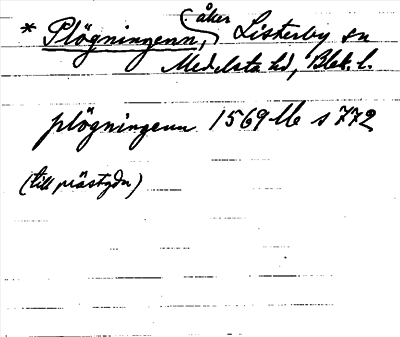 * Plögningenn, åker Listerby sn
Medelsta hd, Blek. l.
plögningenn 1569 Ub s 772
(till prästgdn)